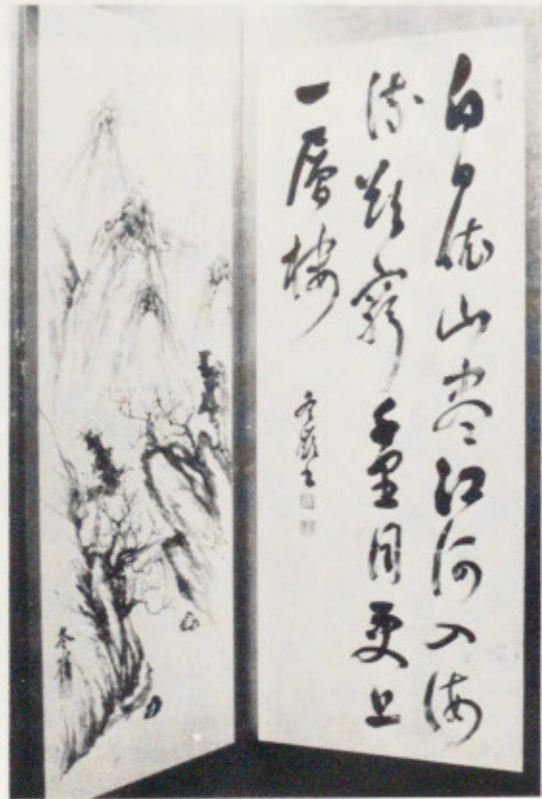 白日依山尽江河入海
流欲窮千里目更上
一層楼